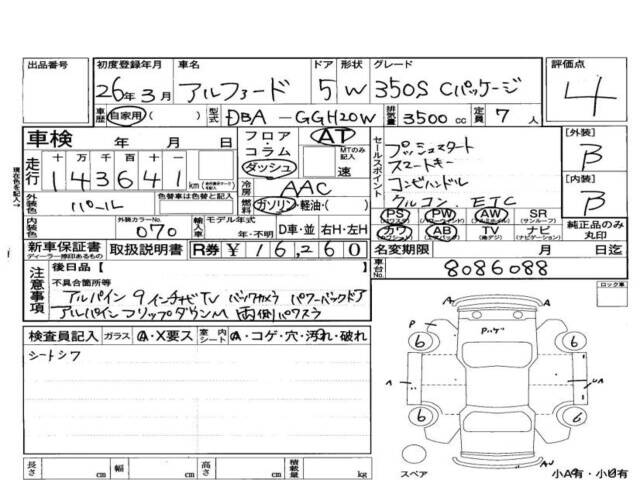 出品番号 初度登録年月 車名 ドア 形状 グレード 評価点
26年 3月 アルファード 5 W 350S Cパッケージ 4
車歴 自家用 ( ) 型式 DBA-GGH20W 排気量 3500 cc 定員 7 人
車検 年 月 日 フロア・コラム・ダッシュ AT MTのみ記入 速
走行 十 万 千 百 十 一
143641 km
冷房 AAC
外装色 パール 色替車は色替と記入 燃料 ガソリン・軽油・( )
内装色 外装カラーNo. 070 輸入車 モデル年式 年・不明 D車・並 右H・左H
セールスポイント
プッシュスタート
スマートキー
コンビハンドル
クルコン. ETC
PS PW AW SR (サンルーフ)
カワ AB TV ナビ (ナビゲーション)
[外装] B
[内装] B
純正品のみ丸印
新車保証書 取扱説明書 R券 ¥16,260
ディーラー捺印あるもの
名変期限 月 日迄
車台No. 8086088
現在色を記入
注意事項
後日品 [ ]
不具合箇所等
アルパイン 9インチナビTV バックカメラ パワーバックドア
アルパインフリップダウンM 両側パワスラ
検査員記入 ガラス A・X要ス 室内シート A・コゲ・穴・汚れ・破れ
シートシワ
ロック車
A A
P Pハゲ
6 6
A UA
6 6
スペア AU
小A有・小U有
長さ cm 幅 cm 高さ cm 積載量 kg